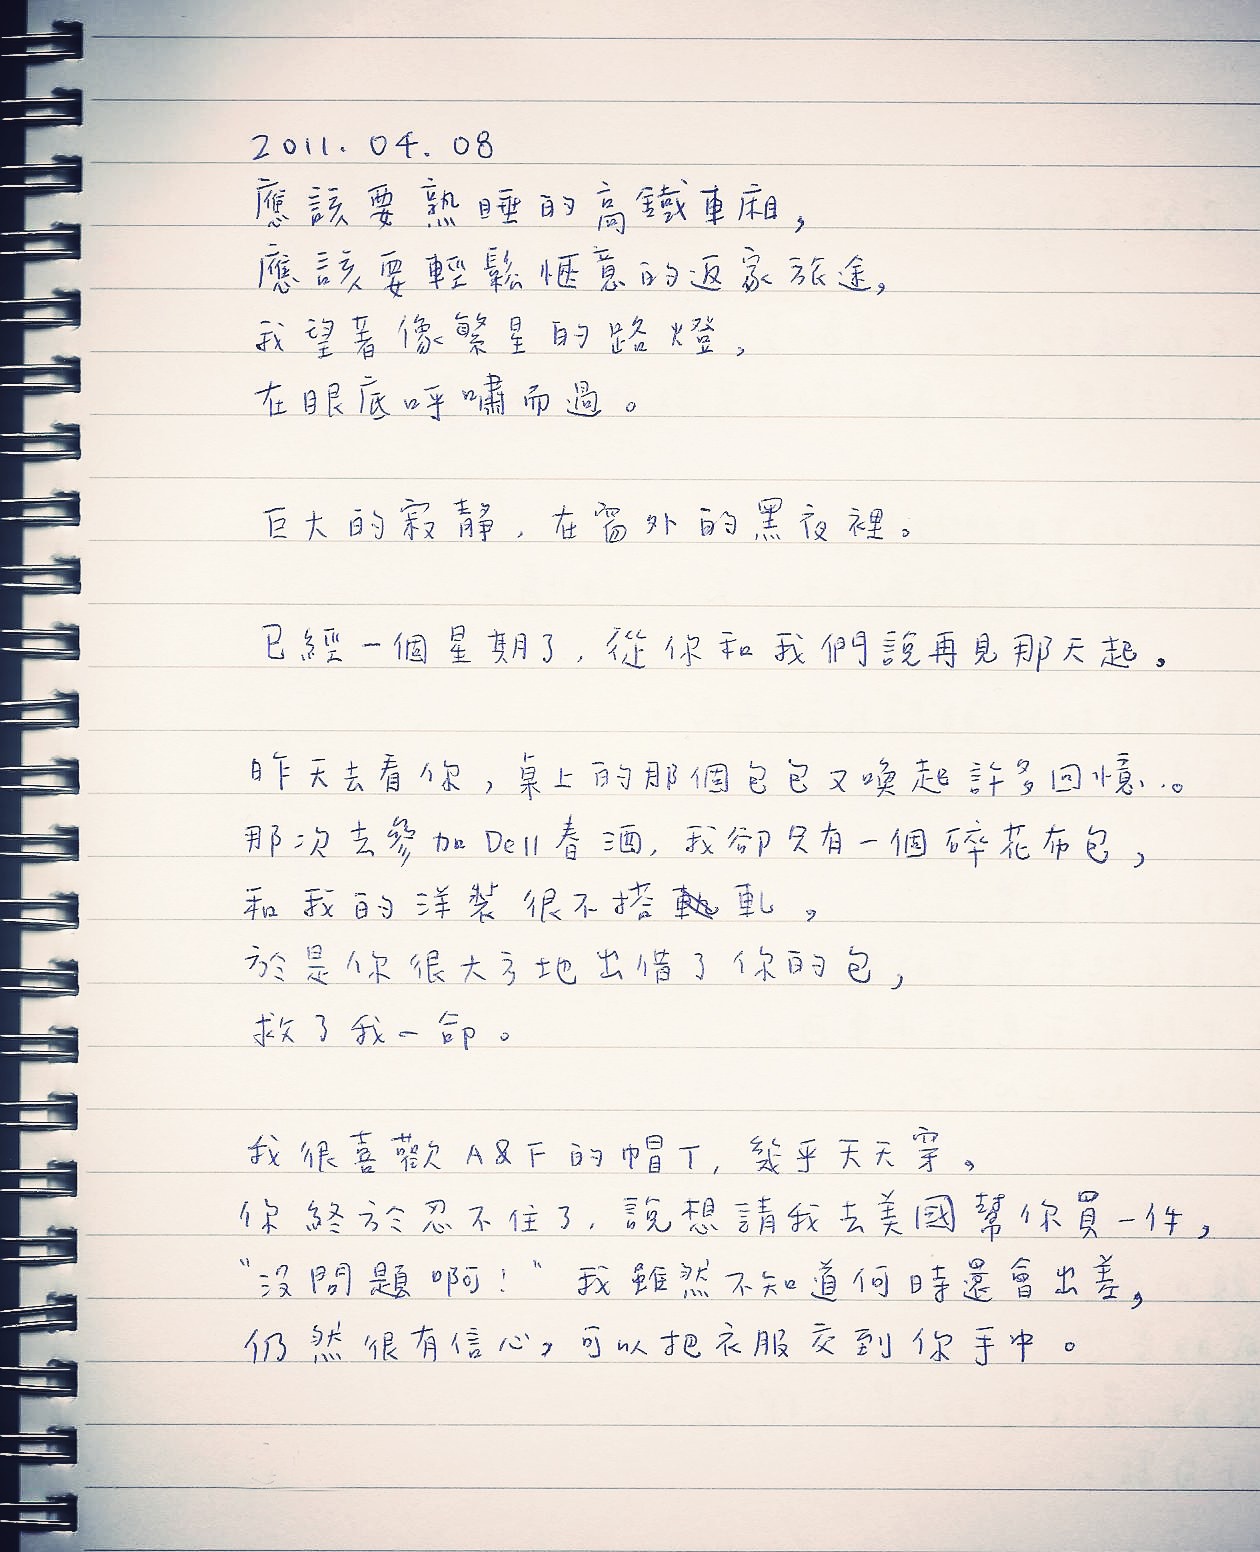 2011. 04. 08
應該要熟睡的高鐵車廂,
應該要輕鬆愜意的返家旅途,
我望著像繁星的路燈,
在眼底呼嘯而過。
巨大的寂靜,在窗外的黑夜裡。
已經一個星期了,從你和我們說再見那天起。
昨天去看你,桌上的那個包包又喚起許多回憶..。
那次去參加Dell春酒,我卻只有一個碎花布包,
和我的洋裝很不搭軋,
於是你很大方地出借了你的包,
救了我一命。
我很喜歡A&F的帽T,幾乎天天穿。
你終於忍不住了,說想請我去美國幫你買一件,
"沒問題啊!"我雖然不知道何時還會出差,
仍然很有信心,可以把衣服交到你手中。